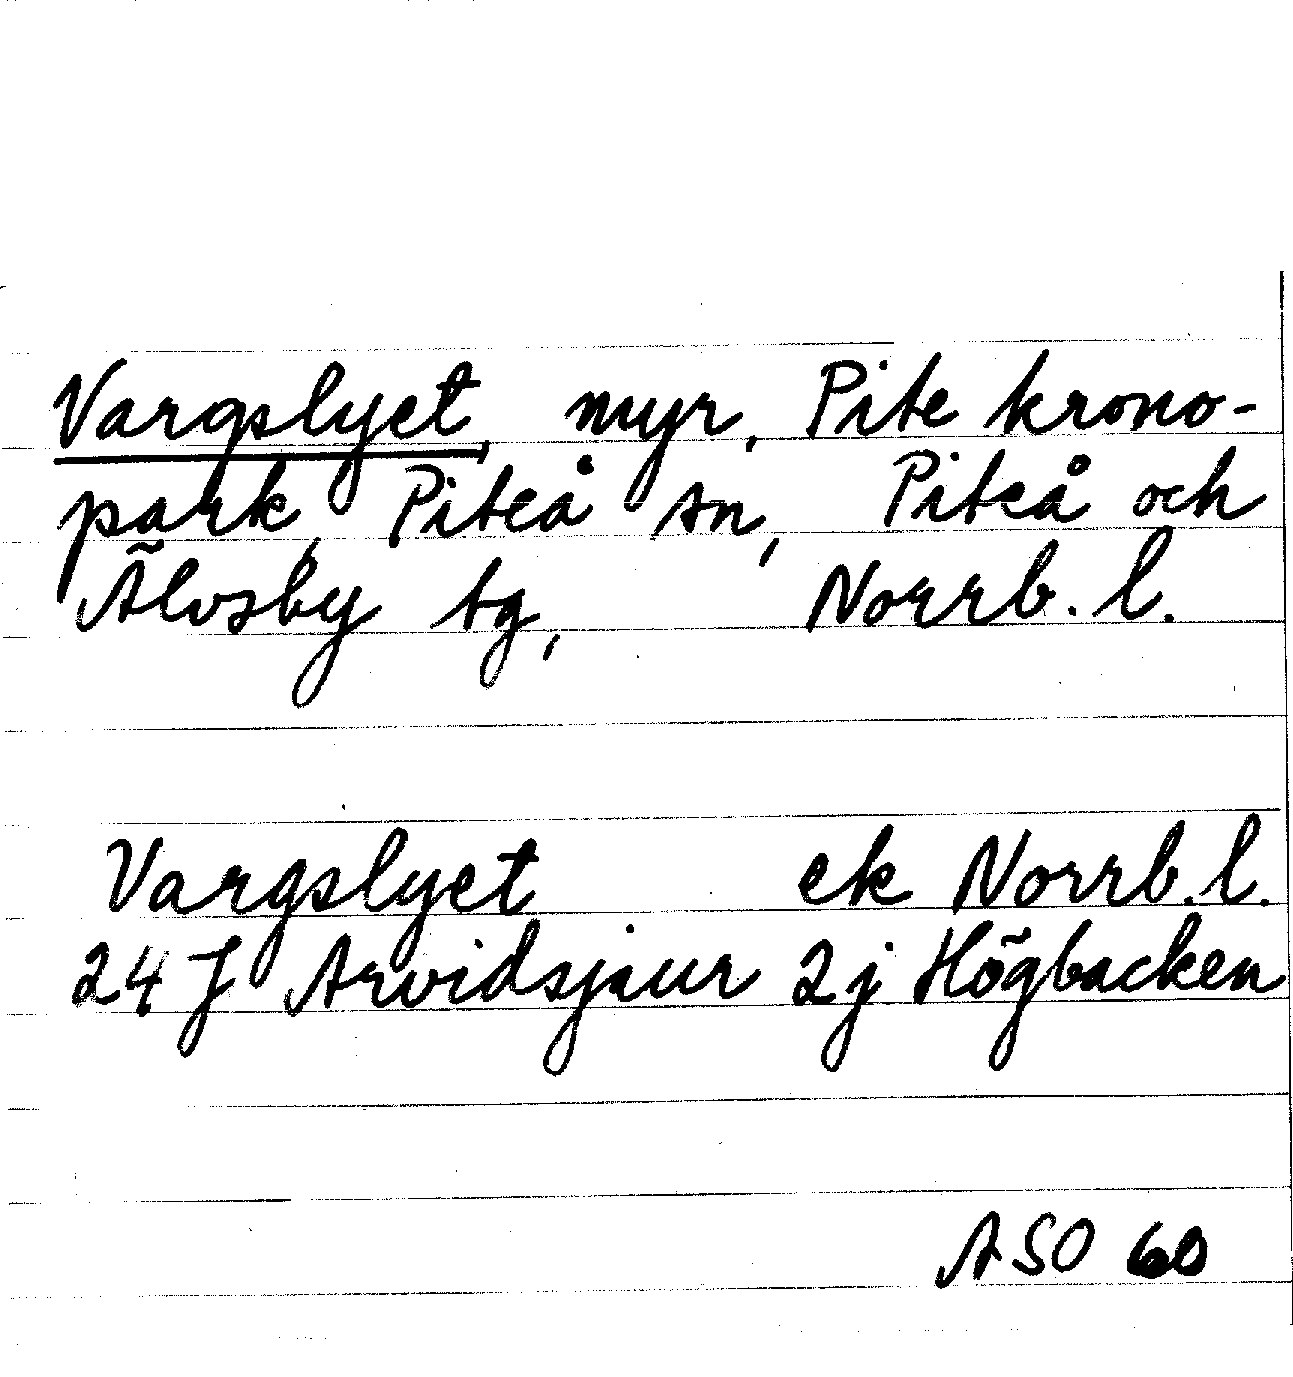 Vargslyet, myr, Pite krono-
park, Piteå sn, Piteå och
Älvsby tg, Norrb. l.
Vargslyet ek Norrb. l.
24 J Arvidsjaur 2j Högbacken
ASO 60